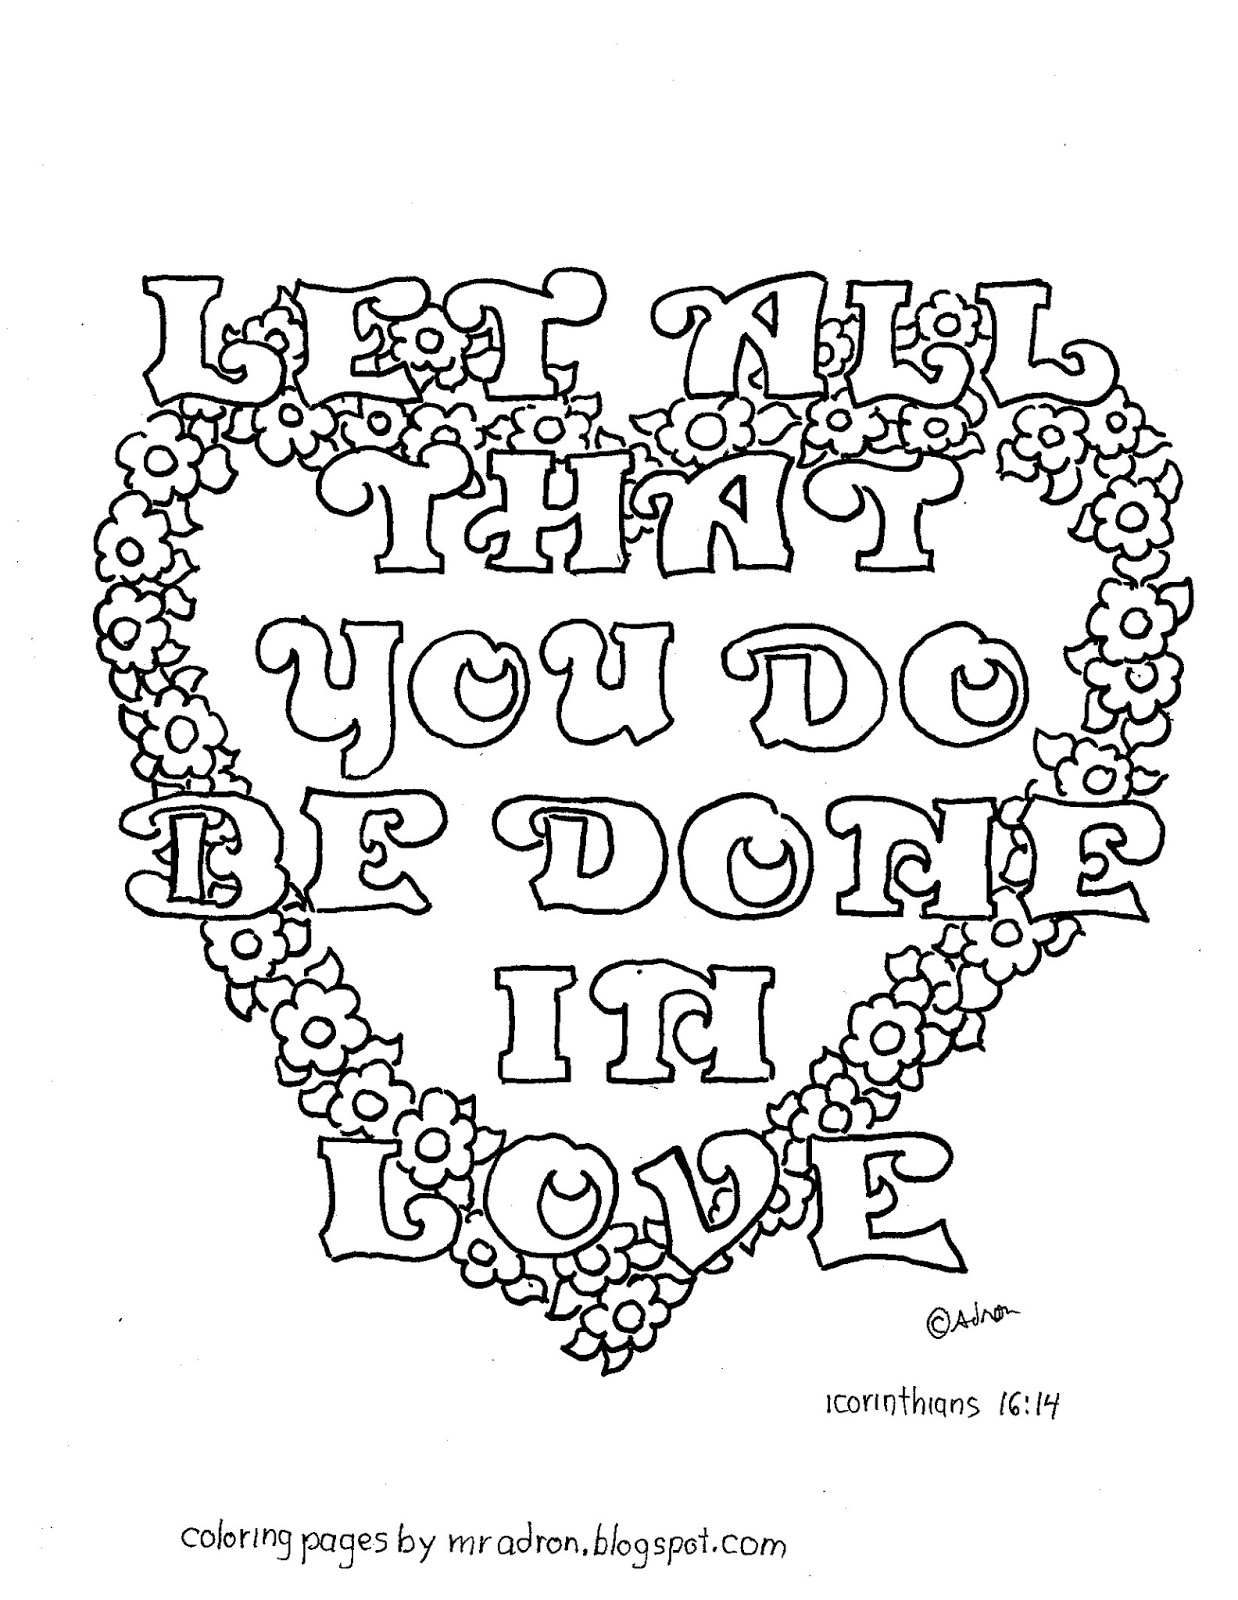 LET ALL
THAT
YOU DO
BE DONE
IN
LOVE
©Adron
1corinthians 16:14
coloring pages by mradron.blogspot.com